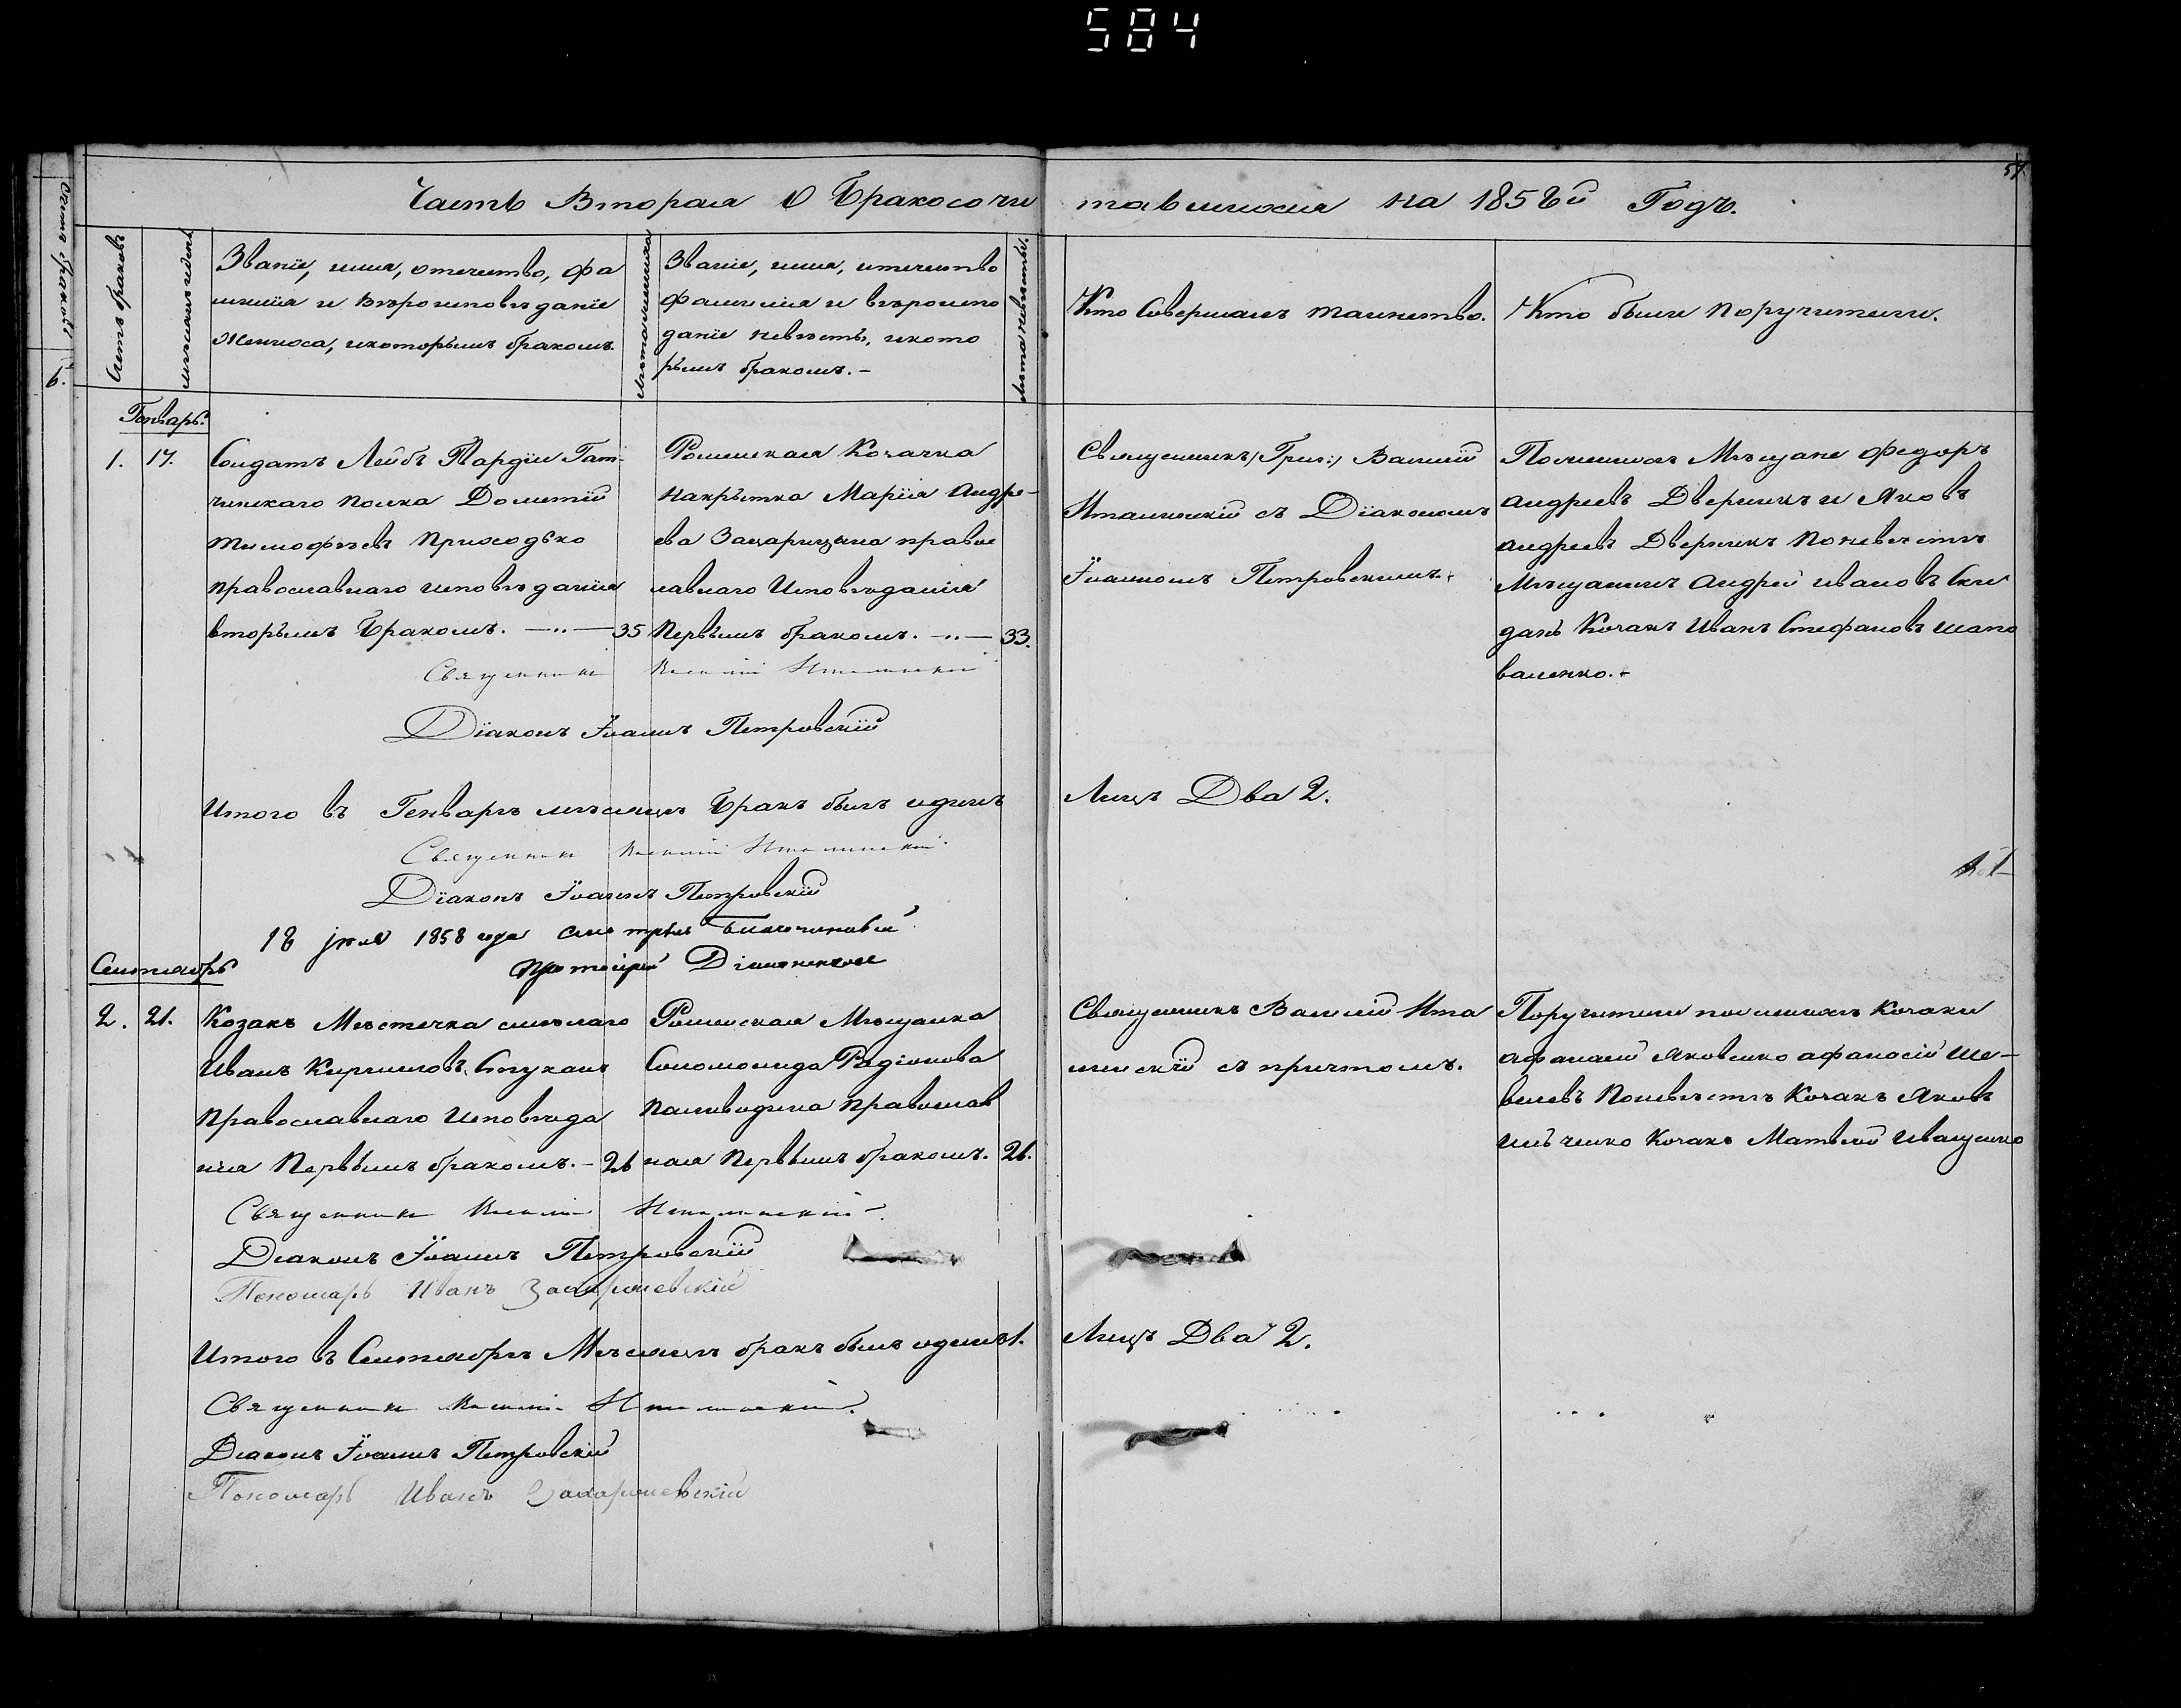 584
57.
Часть Вторая О Бракосоче
тавшихся на 1858й Годъ.
Счетъ браковъ
мѣсяцъ и день
Званїе, имя, отечество, фа
милїя и вѣроисповѣданїе
Жениха, и которымъ бракомъ.
Лѣта жениха
Званїе, имя, отечество
фамилия и вѣроиспо
данїе невѣсты, и кото
рымъ бракомъ. –
Лѣта невѣсты.
Кто Совершалъ таинство.
Кто были Поручители.
6.
Генварь.
1. 17.
Солдатъ Лейбъ Гвардїи Гат-
чинскаго полка Дометїй
Тимофѣевъ Приходько
православнаго исповѣданїя
вторымъ Бракомъ. 35
Роменская Козачка
накрытка Марїя Андре-
ева Захарицына правос
лавнаго Исповѣданїя
Первымъ бракомъ. 33.
Священникъ (Григ:) Василїй
Италинскїй съ Дїакономъ
Їоанномъ Петровскимъ.
По женихѣ Мѣщане Федоръ
Андреевъ Дверникъ и Яковъ
Андреевъ Дверникъ По невѣстѣ
Мѣщанинъ Андрей Ивановъ
Козакъ Иванъ Стефановъ Шапо
валенко.
Священникъ Василій
Дїаконъ Їоаннъ Петровскїй
Итого въ Генварѣ мѣсяцѣ Бракъ былъ одинъ
Лицъ Два 2.
Священникъ Василій
Дїаконъ Їоаннъ Петровскїй
18 1858 года смотрѣлъ Благочинный
Протоіерей
Сентябрь
2. 21.
Козакъ Мѣстечка Смѣлаго
Иванъ Кириловъ
Православнаго Исповѣда
нїя Первымъ бракомъ. – 26
Роменская Мѣщанка
Соломонида Родїонова
Паливодина Православ
ная Первымъ бракомъ. 26.
Священникъ Василїй Ита
линскїй съ причтомъ.
Поручители по женихѣ Козаки
Афанасїй Яковенко Афанасїй Ше-
велевъ По невѣстѣ Козакъ Яковъ
Ильченко Козакъ Матвей Иващенко
Священникъ Василій
Дїаконъ Їоаннъ Петровскїй
Пономарь Иванъ Захаржевскій
Итого въ Сентябрѣ Мѣсяцѣ бракъ былъ одинъ 1.
Лицъ Два 2.
Священникъ Василій
Дїаконъ Їоаннъ Петровскїй
Пономарь Иванъ Захаржевскій